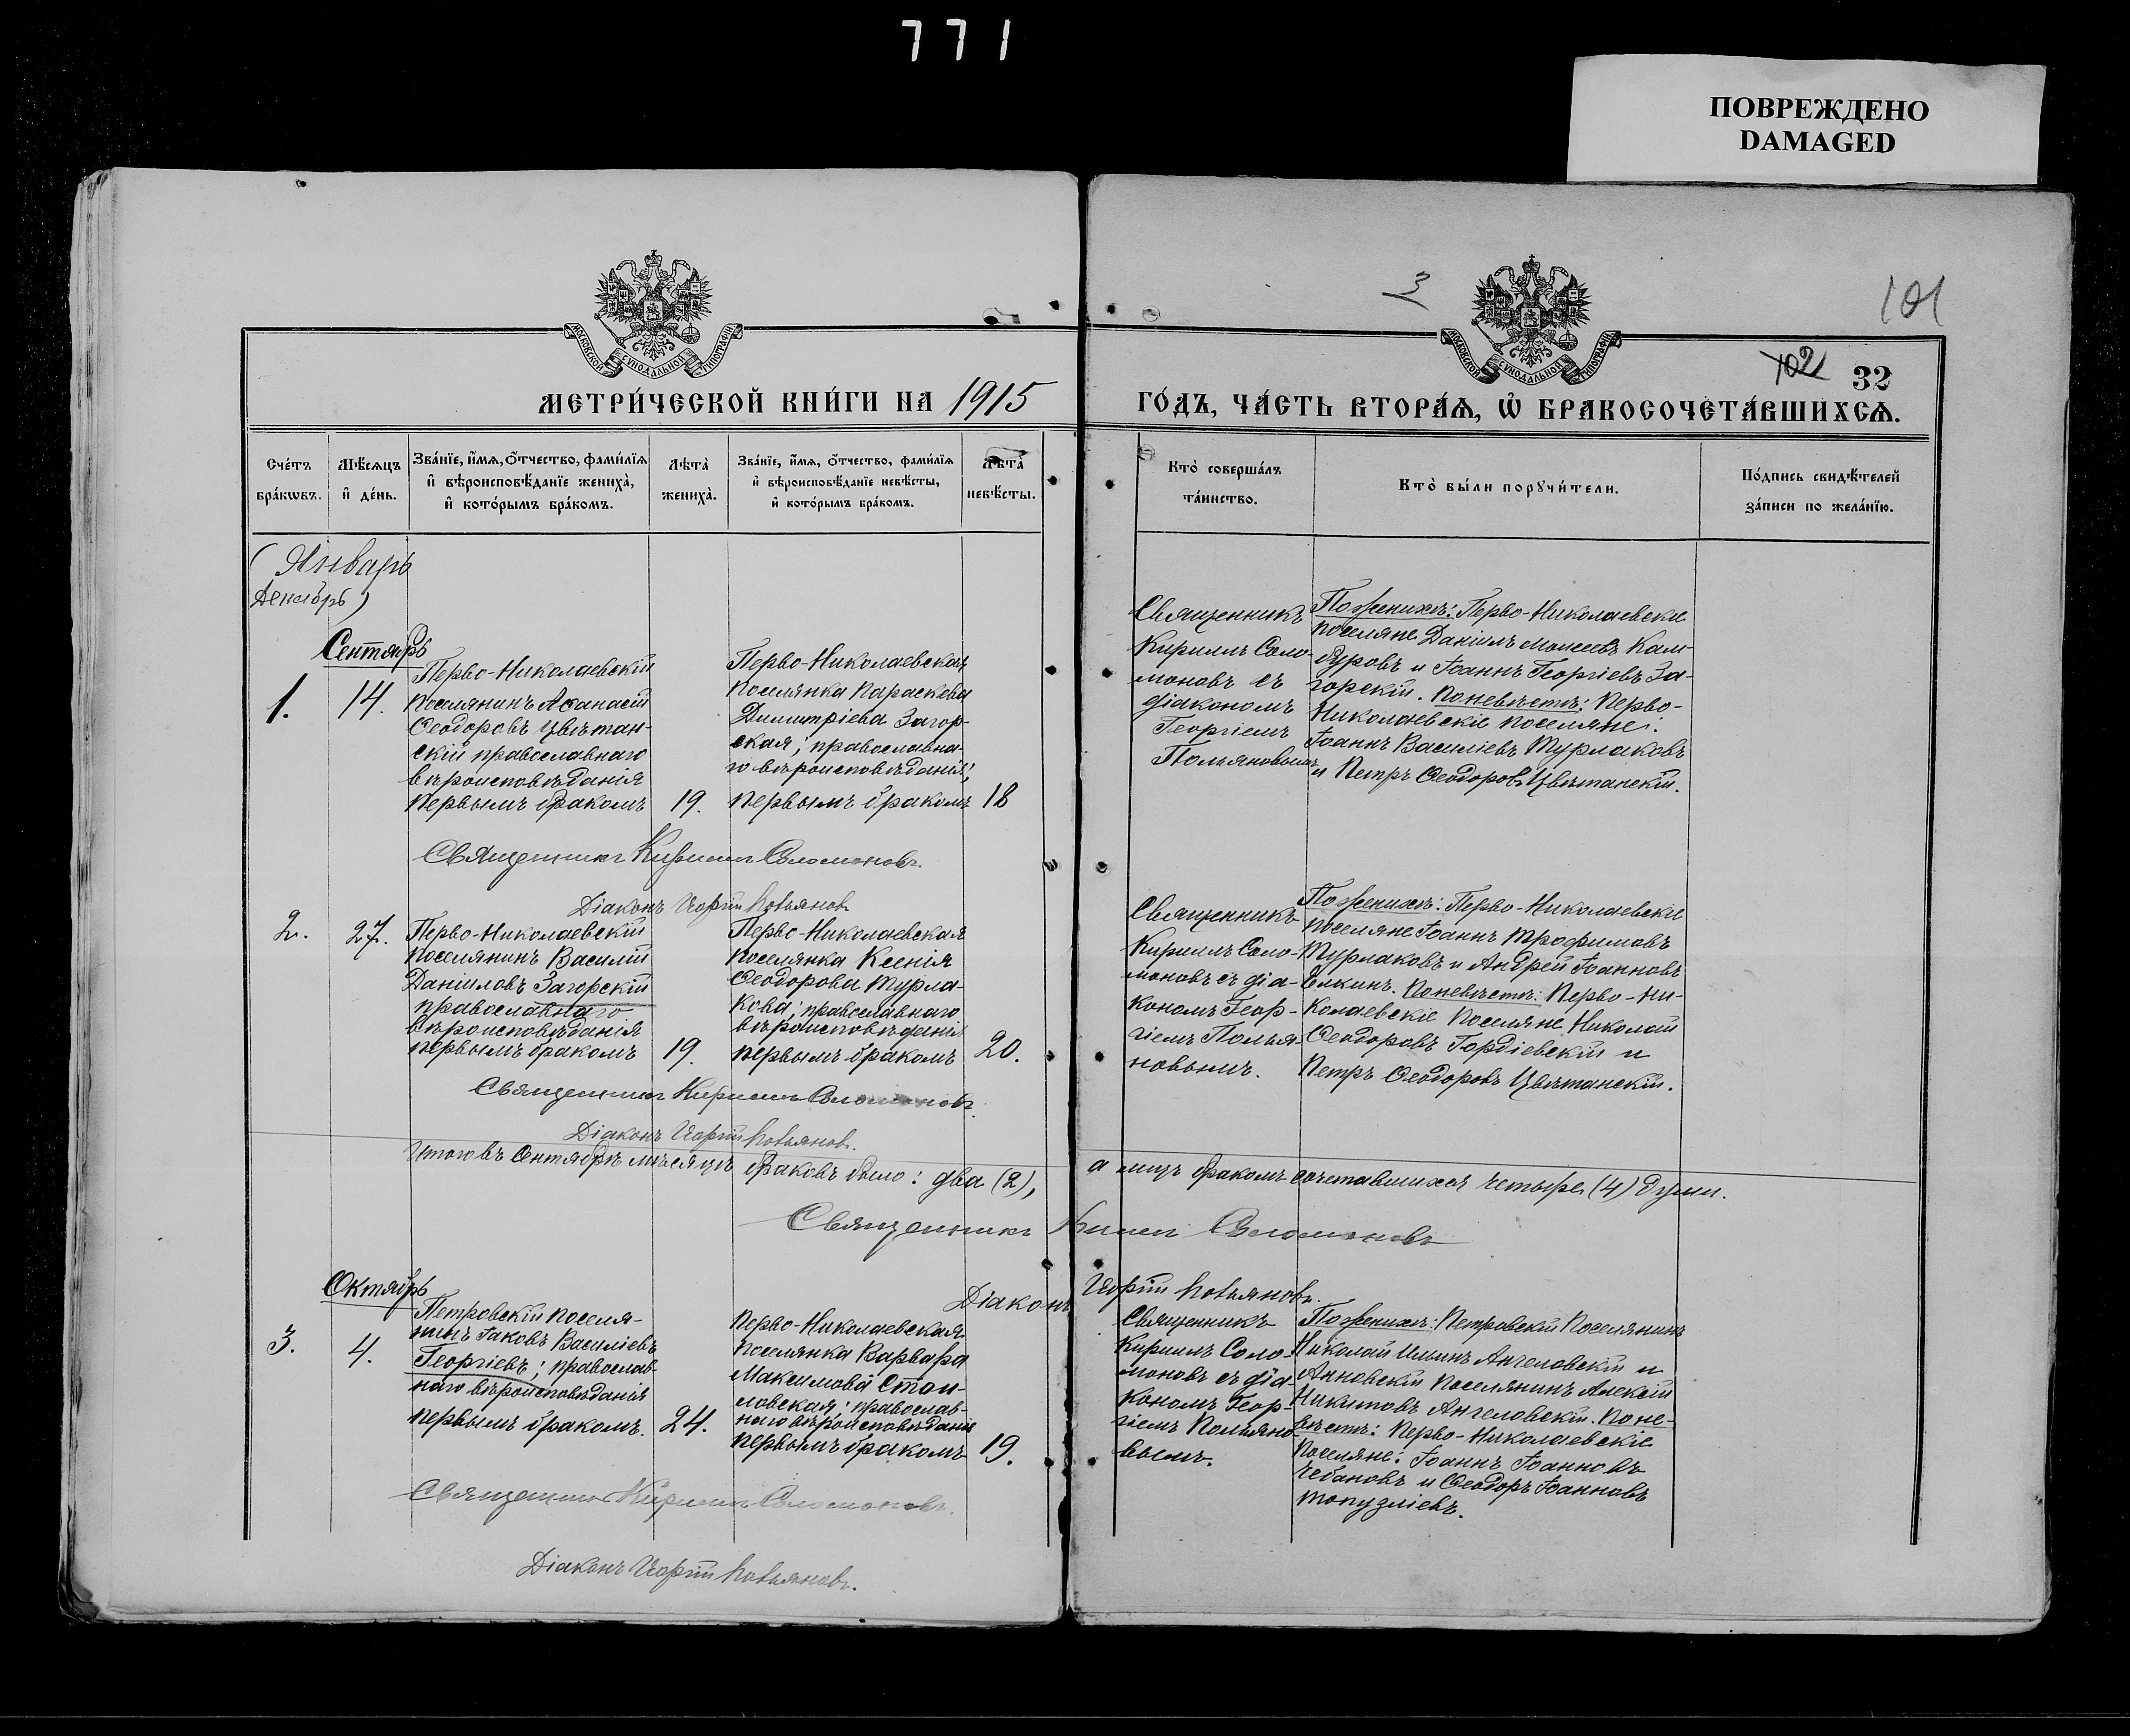 771
ПОВРЕЖДЕНО
DAMAGED
3
101
102
32
МОСКОВСКОЙ СУНОДАЛЬНОЙ ТИПОГРАФІИ
МОСКОВСКОЙ СУНОДАЛЬНОЙ ТИПОГРАФІИ
МЕТРИ́ЧЕСКОЙ КНИ́ГИ НА 1915
ГО́ДЪ, ЧА́СТЬ ВТОРА́Ѧ, Ѡ҆ БРАКОСОЧЕТА́ВШИХСѦ.
Сче́тъ
бра́кѡвъ.
Мѣ́сѧцъ
и҆ де́нь.
Зва́нїе, и҆́мѧ, ѻ҆́тчество, фами́лїѧ
и҆ вѣроисповѣ́данїе жениха̀,
и҆ кото́рымъ бра́комъ.
Лѣ́та̀
жениха̀.
Зва́нїе, и҆́мѧ, ѻ҆́тчество, фами́лїѧ
и҆ вѣроисповѣ́данїе невѣ́сты,
и҆ кото́рымъ бра́комъ.
Лѣ́та̀
невѣ́сты.
Кто̀ соверша́лъ
та́инство.
Кто̀ бы́ли порꙋчи́тели.
По́дпись свидѣ́телей
за́писи по жела́нїю.
(Январь
Декабрь)
Сентябрь
1.
14.
Перво-Николаевскій
поселянинъ Аѳанасій
Ѳеодоровъ Цвѣтан-
скій православнаго
вѣроисповѣданія
первымъ бракомъ
19.
Перво-Николаевская
поселянка Параскева
Димитріева Загор-
ская; православна-
го вѣроисповѣданія;
первымъ бракомъ
18
Священникъ
Кириллъ Соло-
моновъ съ
діакономъ
Георгіемъ
Польяновымъ
По женихѣ: Перво-Николаевскіе
поселяне Даніилъ Моисеевъ Кам-
буровъ и Іоаннъ Георгіевъ За-
горскій. По невѣстѣ: Перво-
Николаевскіе поселяне:
Іоаннъ Василіевъ Турлаковъ
и Петръ Ѳеодоровъ Цвѣтанскій.
Священникъ Кириллъ Соломоновъ.
Діаконъ Георгій Польяновъ
2.
27.
Перво-Николаевскій
поселянинъ Василій
Даніиловъ Загорскій
православнаго
вѣроисповѣданія
первымъ бракомъ
19.
Перво-Николаевская
поселянка Ксенія
Ѳеодорова Турла-
кова; православнаго
вѣроисповѣданія
первымъ бракомъ
20.
Священникъ
Кириллъ Соло-
моновъ съ діа-
кономъ Геор-
гіемъ Полья-
новымъ.
По женихѣ: Перво-Николаевскіе
поселяне Іоаннъ Трофимовъ
Турлаковъ и Андрей Іоанновъ
Елкинъ. По невѣстѣ: Перво-Ни-
колаевскіе поселяне Николай
Ѳеодоровъ Гордіевскій и
Петръ Ѳеодоровъ Цвѣтанскій.
Священникъ Кириллъ Соломоновъ.
Діаконъ Георгій Польяновъ.
Итого въ Сентябрѣ мѣсяцѣ браковъ было: два (2), а лицъ бракомъ сочетавшихся четыре (4) души.
Священникъ Кириллъ Соломоновъ
Діаконъ Георгій Польяновъ.
Октябрь
3.
4.
Петровскій поселя-
нинъ Іаковъ Василіевъ
Георгіевъ; православ-
наго вѣроисповѣданія
первымъ бракомъ.
24.
Перво-Николаевская
поселянка Варвара
Максимова Стои-
ловская; православ-
наго вѣроисповѣданія
первымъ бракомъ
19.
Священникъ
Кириллъ Соло-
моновъ съ діа-
кономъ Геор-
гіемъ Польяно-
вымъ.
По женихѣ: Петровскій поселянинъ
Николай Ильинъ Ангеловскій и
Анновскій поселянинъ Алексій
Никитовъ Ангеловскій. По не-
вѣстѣ: Перво-Николаевскіе
поселяне: Іоаннъ Іоанновъ
Чебановъ и Ѳеодоръ Іоанновъ
Топузліевъ.
Священникъ Кириллъ Соломоновъ.
Діаконъ Георгій Польяновъ.